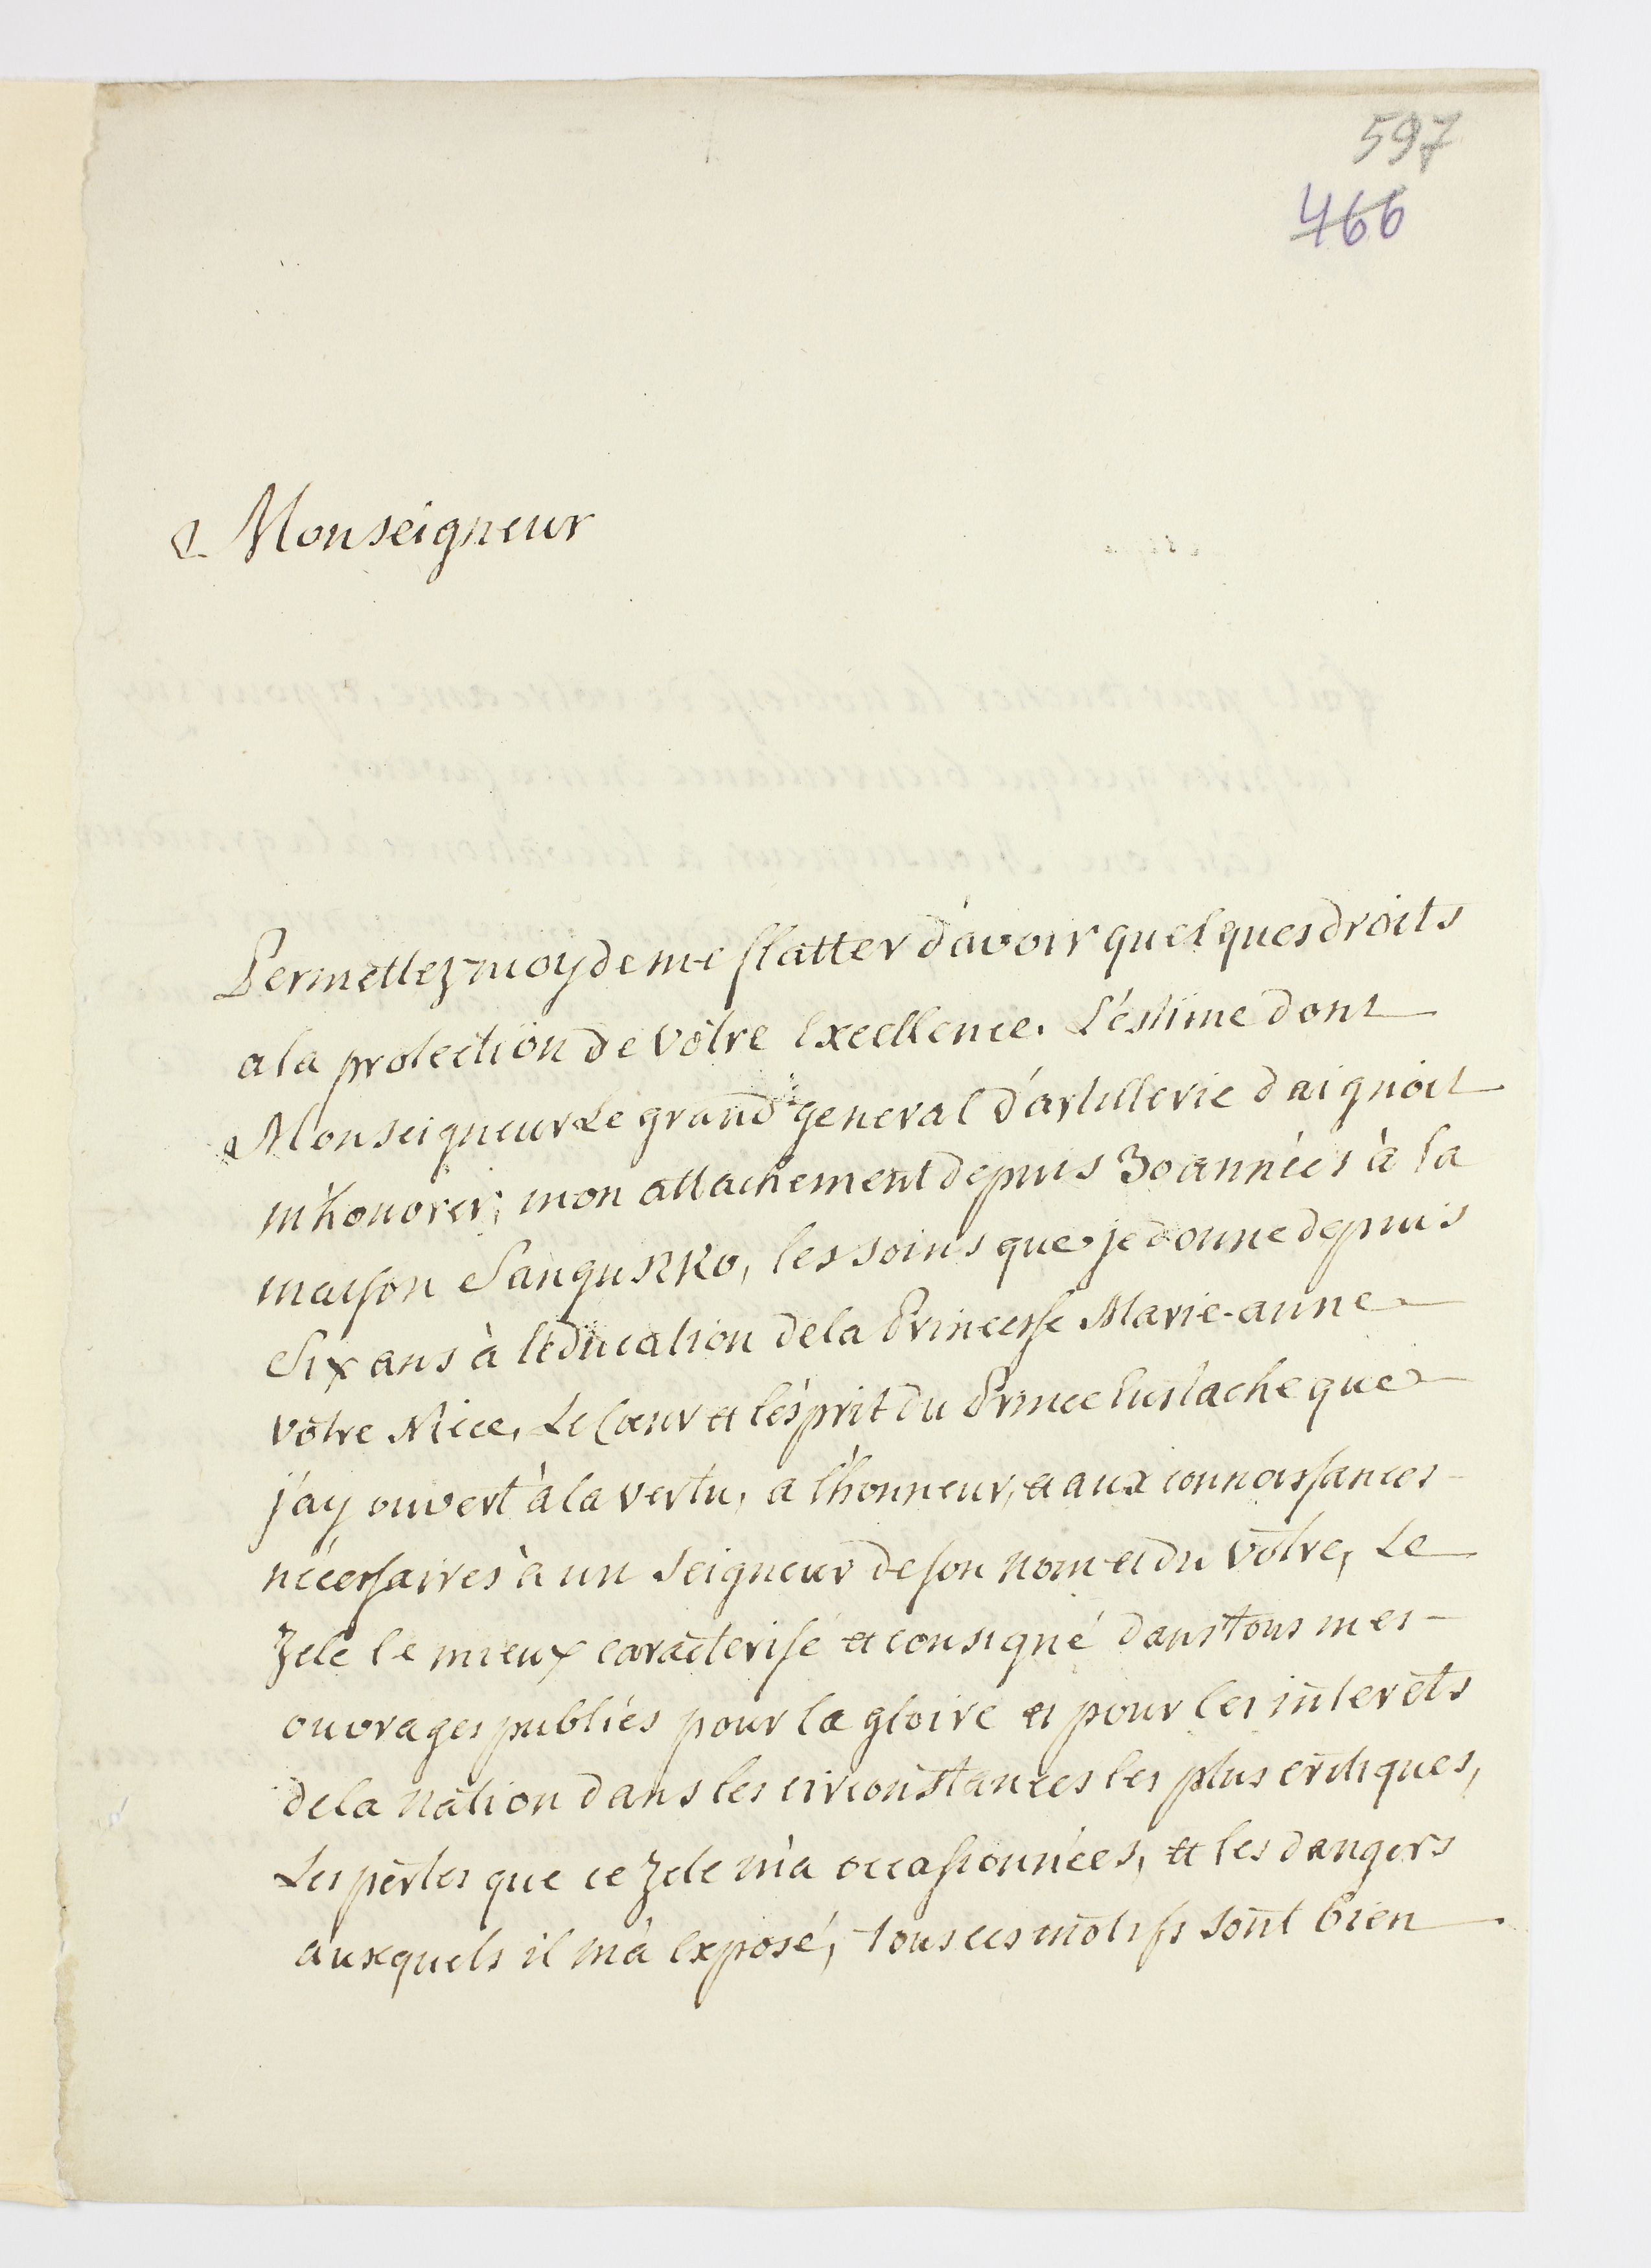 597
466
Monseigneur
Permettez moy de me flatter d'avoir quelques droits
a la protection de vôtre Excellence. L'éstime dont
Monseigneur Le grand general d'artillerie daignoit
m'honorer, mon attachement depuis 30 années à la
maison Sanguszko, les soins que je donne depuis
Six ans à l'éducation de la Princesse Marie-anne
vôtre Niece, Le Cœur et l'ésprit du Prince Eustache que
j'ay ouvert à la vertu, a l'honneur, et aux connoissances
nécessaires à un Seigneur de son nom et du vôtre, Le
Zele le mieux caracterisé et consigné dans tous mes
ouvrages publiés pour la gloire et pour les interêts
de la Nation dans les circonstances les plus critiques,
Les pertes que ce Zele m'a occasionnées, et les dangers
auxquels il m'a exposé, tous ces motifs sont bien